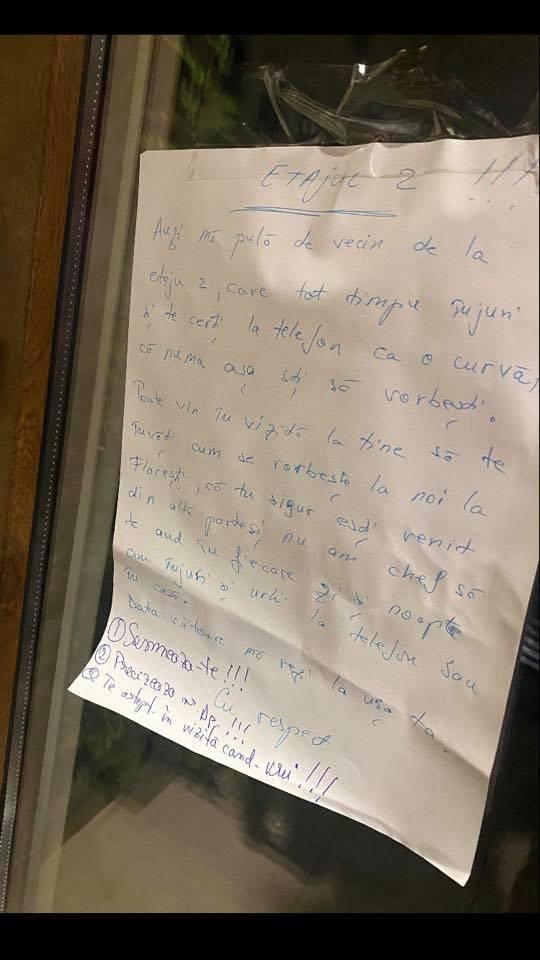 ETAJUL 2 !!!
Auzi mă pulă de vecin de la
etaju 2, care tot timpu înjuri
și te cerți la telefon ca o curvă,
că numa așa ști să vorbești.
Poate vin în vizită la tine să te
învăț cum se vorbește la noi la
Florești, că tu sigur ești venit
din altă parte și nu am chef să
te aud în fiecare zi și noapte
cum înjuri și urli la telefon sau
în casă.
Data viitoare mă vezi la ușa ta.
Cu respect
① Semnează-te !!!
② Precizeaza nr. Ap. !!!
③ Te astept in vizită cand vrei !!!